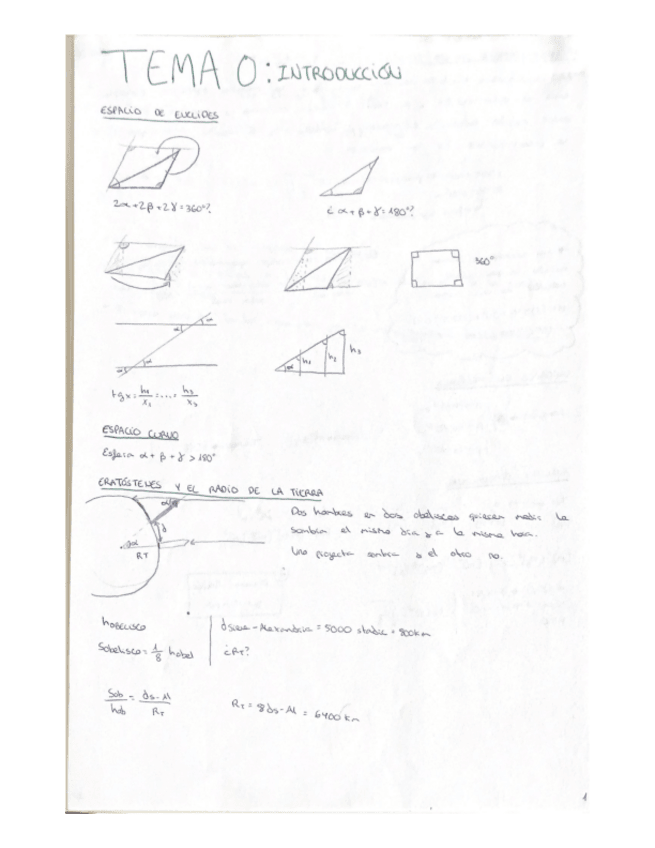 TEMA 0: INTRODUCCIÓN
ESPACIO DE EUCLIDES
2α+2β+2γ=360°?
¿ α+β+γ=180°?
360°
α α
α α
α h1 h2 h3
tg α = h1/x1 = ... = h3/x3
ESPACIO CURVO
Esfera α+β+γ>180°
ERATÓSTENES Y EL RADIO DE LA TIERRA
Dos hombres en dos obeliscos quieren medir la
sombra el mismo día y a la misma hora.
Uno proyecta sombra y el otro no.
α
d
α
RT
hobelisco
dSiena-Alexandria = 5000 stadia = 800km
Sobelisco = 1/8 hobel
¿RT?
Sob/hob = ds-Al/RT
RT = 8ds-Al = 6400 km
1